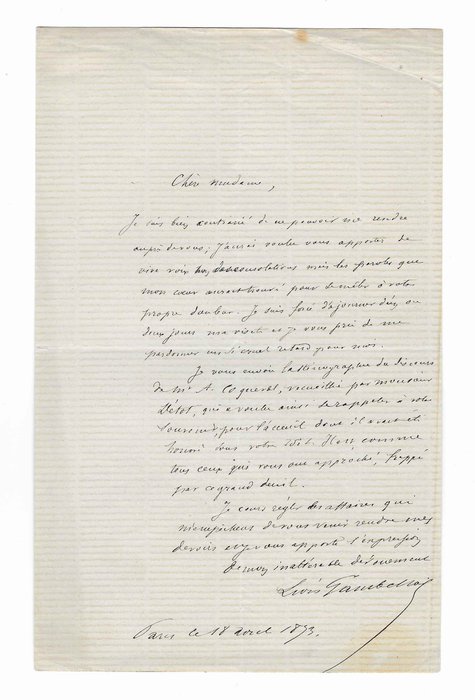 Chère Madame,
Je suis bien contrarié de ne pouvoir me rendre
auprès de vous; j'aurais voulu vous apporter de
vive voix consolations mais les paroles que
mon cœur aurait trouvé pour se mêler à votre
propre douleur. Je suis forcé d'ajourner d'un ou
deux jours ma visite et je vous prie de me
pardonner un si cruel retard pour moi.
Je vous envoie la sténographie du discours
de Mr A. Coquerel, recueillie par monsieur
qui a voulu ainsi se rappeler à votre
souvenir pour l'accueil dont il avait été
honoré sous votre toit. Il est comme
tous ceux qui vous ont approché, frappé
par ce grand deuil.
Je cours régler des affaires qui
m'empêchent de vous venir rendre mes
devoirs et je vous apporte l'expression
de mon inaltérable dévouement
Paris le 18 avril 1873.